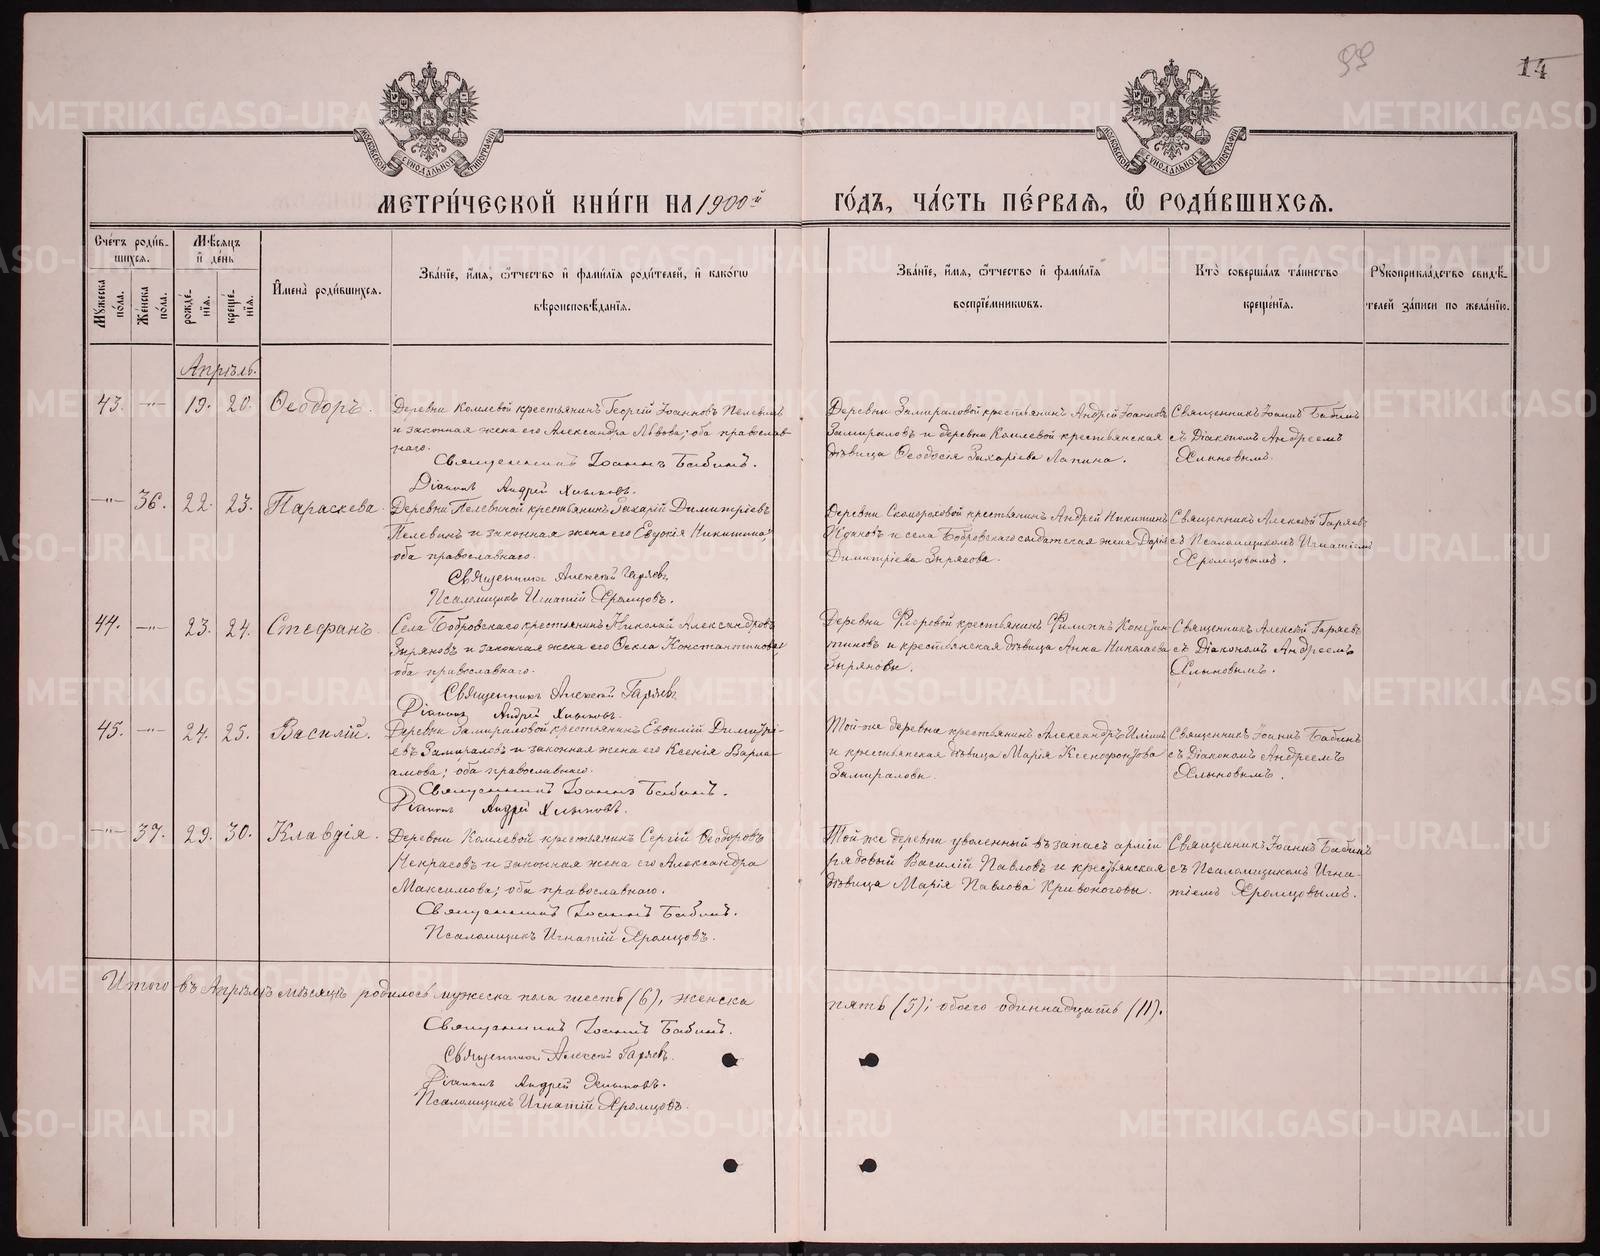 99
14
МОСКОВСКОЙ СУНОДАЛЬНОЙ ТИПОГРАФІИ
МОСКОВСКОЙ СУНОДАЛЬНОЙ ТИПОГРАФІИ
МЕТРИ́ЧЕСКОЙ КНИ́ГИ НА 1900й ГО́ДЪ, ЧА́СТЬ ПЕ́РВАѦ, Ѡ҆ РОДИ́ВШИХСѦ.
Сче́тъ роди́в-
шихсѧ.
Мꙋжеска по́ла.
Же́нска по́ла.
Мѣ́сѧцъ и҆ де́нь
рожде́-нїѧ.
креще́-нїѧ.
И҆мена̀ роди́вшихсѧ.
Зва́нїе, и҆́мѧ, ѻ҆́тчество и҆ фами́лїѧ роди́телей, и҆ како́гѡ
вѣроисповѣ́данїѧ.
Зва́нїе, и҆́мѧ, ѻ҆́тчество и҆ фами́лїѧ
воспрїе́мникѡвъ.
Кто̀ соверша́лъ та́инство
креще́нїѧ.
Рꙋкоприкла́дство свидѣ́-
телей за́писи по жела́нїю.
Апрѣль.
43. —"— 19. 20. Ѳеодоръ.
Деревни Комлевой крестьянинъ Георгій Іоанновъ Пелевинъ
и законная жена его Александра Львова; оба православ-
наго.
Священникъ Іоаннъ Бабинъ.
Діаконъ Андрей Хлыновъ.
Деревни Замираловой крестьянинъ Андрей Іоанновъ
Замираловъ и деревни Комлевой крестьянская
дѣвица Ѳеодосія Захаріева Лапина.
Священникъ Іоаннъ Бабинъ
съ Діакономъ Андреемъ
Хлыновымъ.
—"— 36. 22. 23. Параскева.
Деревни Пелевиной крестьянинъ Захарій Димитріевъ
Пелевинъ и законная жена его Евдокія Никитина;
оба православнаго.
Священникъ Алексій Гаряевъ
Псаломщикъ Игнатій Хромцовъ.
Деревни Скомороховой крестьянинъ Андрей Никитинъ
Ждановъ и села Бобровскаго солдатская жена Дарія
Димитріева Зырянова.
Священникъ Алексій Гаряевъ
съ Псаломщикомъ Игнатіемъ
Хромцовымъ.
44. —"— 23. 24. Стефанъ.
Села Бобровскаго крестьянинъ Николай Александровъ
Зыряновъ и законная жена его Ѳекла Константинова;
оба православнаго.
Священникъ Алексій Гаряевъ
Діаконъ Андрей Хлыновъ.
крестьянинъ Филиппъ Констан-
тиновъ и крестьянская дѣвица Анна Николаева
Зыряновы.
Священникъ Алексій Гаряевъ
съ Діакономъ Андреемъ
Хлыновымъ.
45. —"— 24. 25. Василій.
Деревни Замираловой крестьянинъ Евфимій Димитрі-
евъ Замираловъ и законная жена его Ксенія Варла-
амова; оба православнаго.
Священникъ Іоаннъ Бабинъ.
Діаконъ Андрей Хлыновъ.
Той-же деревни крестьянинъ Александръ Иліинъ
и крестьянская дѣвица Марія Ксенофонтова
Замираловы.
Священникъ Іоаннъ Бабинъ
съ Діакономъ Андреемъ
Хлыновымъ.
—"— 37. 29. 30. Клавдія.
Деревни Комлевой крестьянинъ Сергій Ѳеодоровъ
Некрасовъ и законная жена его Александра
Максимова; оба православнаго.
Священникъ Іоаннъ Бабинъ.
Псаломщикъ Игнатій Хромцовъ.
Той-же деревни уволенный въ запасъ арміи
рядовый Василій Павловъ и крестьянская
дѣвица Марія Павлова Кривоноговы.
Священникъ Іоаннъ Бабинъ
съ Псаломщикомъ Игна-
тіемъ Хромцовымъ.
Итого въ Апрѣлѣ мѣсяцѣ родилось мужеска пола шесть (6), женска пять (5); обоего одиннадцать (11).
Священникъ Іоаннъ Бабинъ.
Священникъ Алексій Гаряевъ.
Діаконъ Андрей Хлыновъ.
Псаломщикъ Игнатій Хромцовъ.